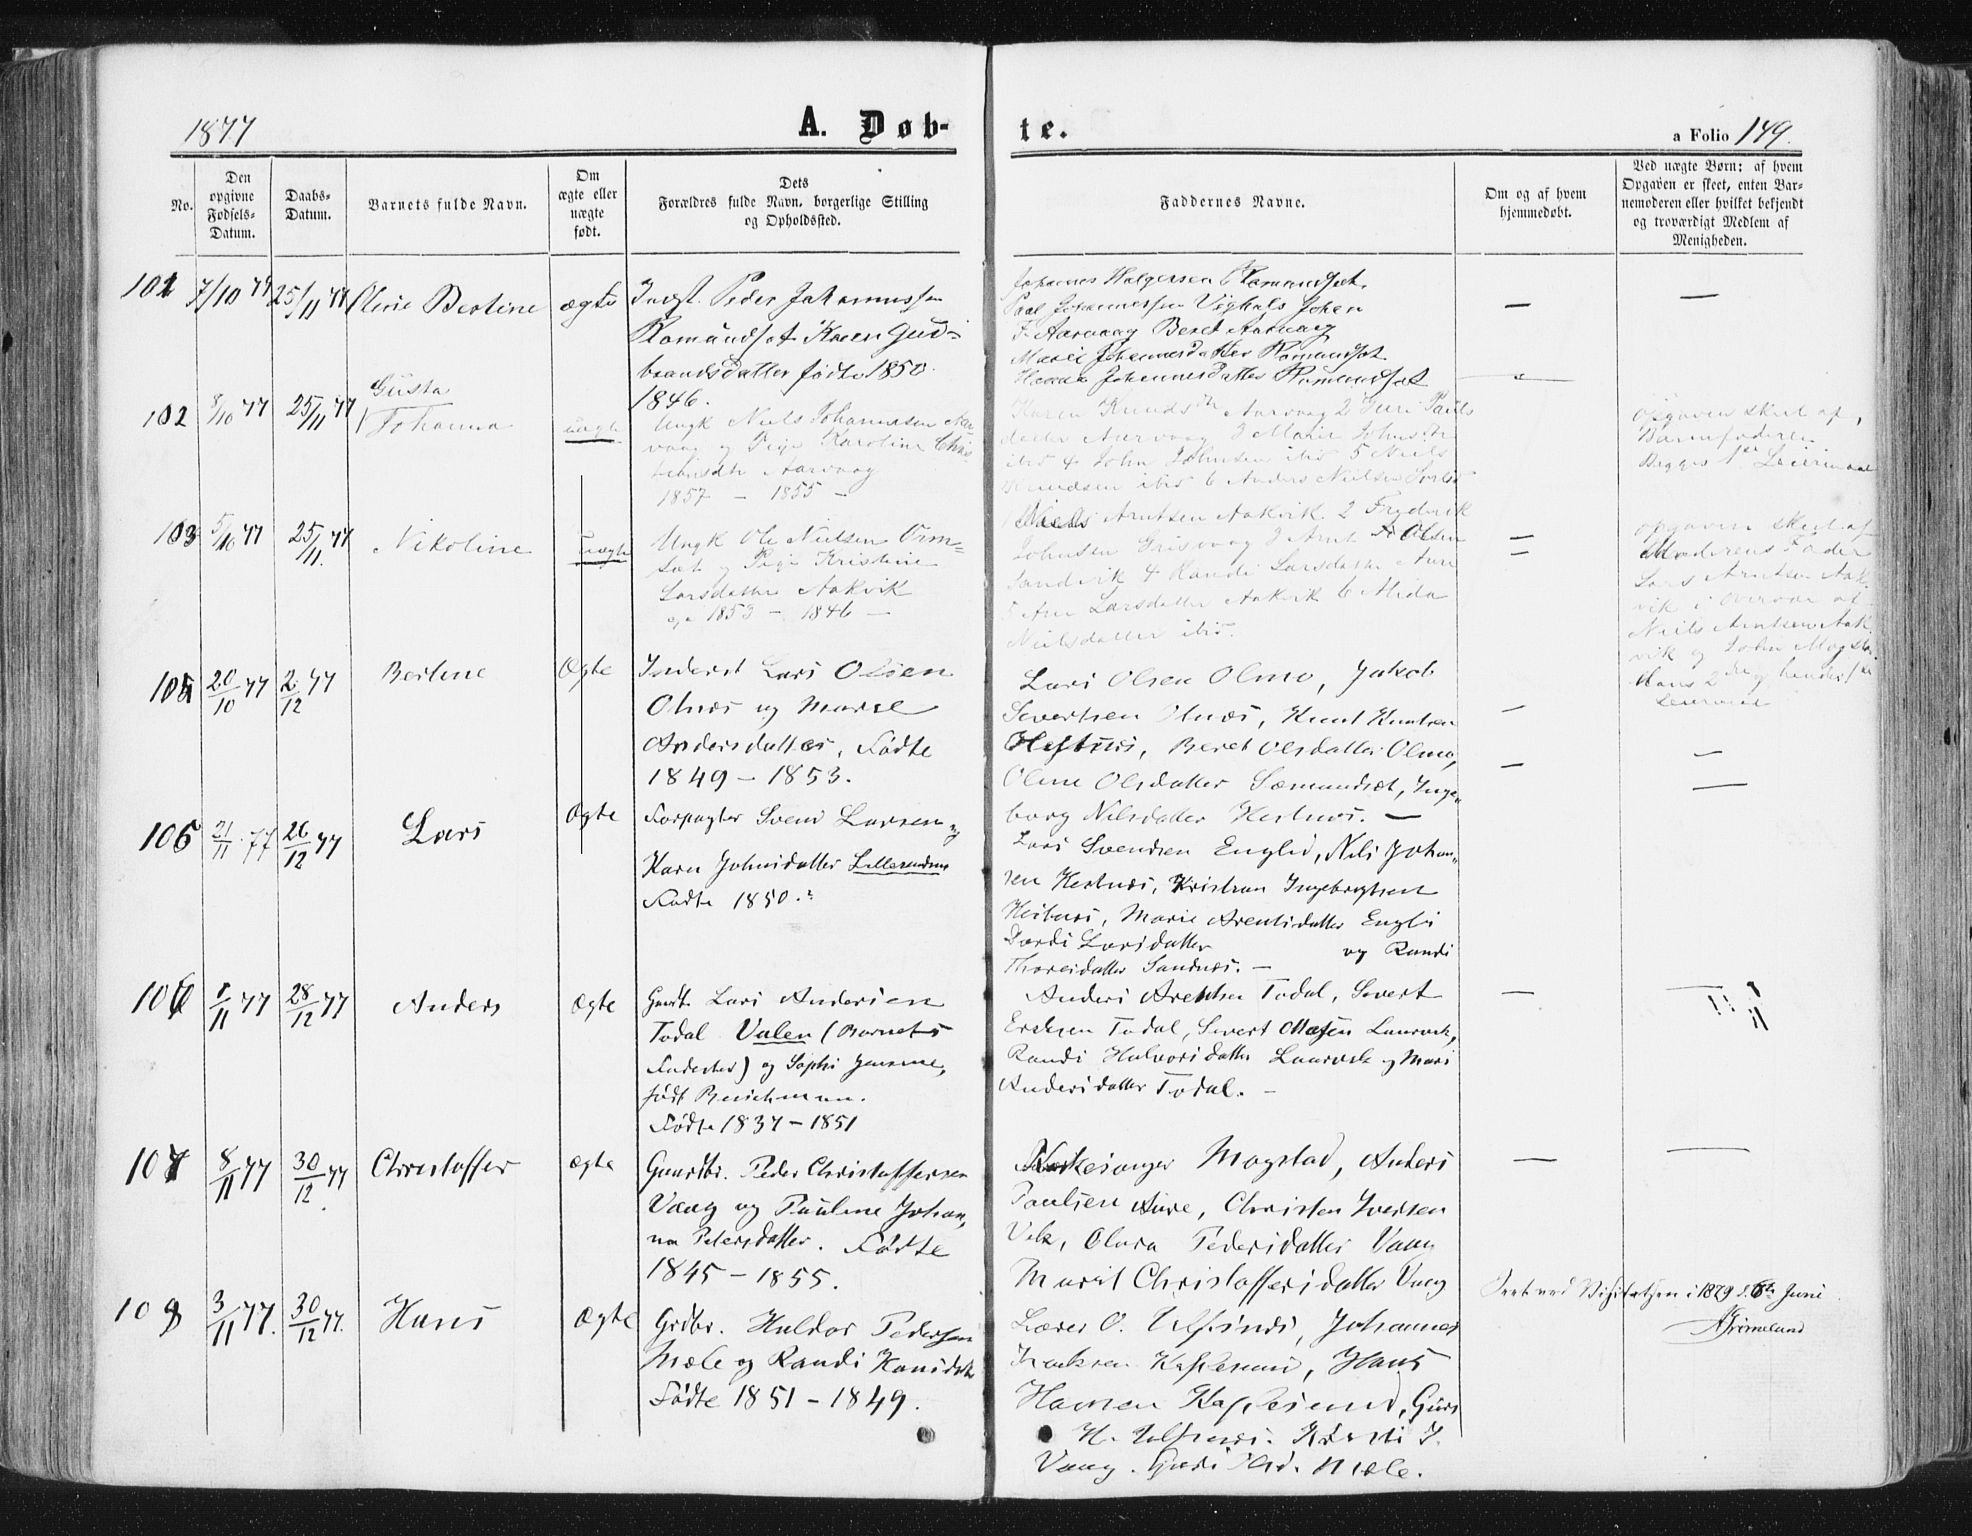 1877
A. Døb-
te.
a Folio 149.
No.
Den
opgivne
Fødsels-
Datum.
Daabs-
Datum.
Barnets fulde Navn.
Om
ægte eller
uægte
født.
Dets
Forældres fulde Navn, borgerlige Stilling
og Opholdssted.
Faddernes Navne.
Om og af hvem
hjemmedøbt.
Ved uægte Børn: af hvem
Opgaven er skeet, enten Bar-
nemoderen eller hvilket bekjendt
og troværdigt Medlem af
Menigheden.
101 7/10 77 25/11 77 Oline Bertine ægte
Indst. Peder Johannessen
Romundset Karen Gud-
brandsdatter fødte 1850
1846.
Johannes Halgersen Romundset
Paul Johannessen Johan
F. Aarvaag Beret Aarvaag
Marei Johannesdatter Romundset
Johannesdatter Romundset
102 8/10 77 25/11 77 Gusta
Johanna uægte
Ungk Niels Johannesen Aar-
vaag og Pige Karoline
Aarvaag
1857 - 1855 -
Karen Knudsdtr Aarvaag 2 Guri Pauls
datter Aarvaag 3 Marit Johnsdtr
ibid 4 John Johnsen ibid 5 Niels
Knudsen ibid 6 Anders Nielsen
Opgaven skeet af
Barnefaderen
Begges 1ste Leiermaal
103 5/10 77 25/11 77 Nikoline Uægte
Ungk Ole Nielsen Orm-
set og Pige Kristine
Larsdatter Aakvik
1853 - 1846 -
Niels Arntsen Aakvik 2 Frederik
Johnsen Grisvaag 3 Arnt Olsen
Sandvik 4 Randi Larsdatter Aure
5 Ane Larsdatter Aakvik 6 Alida
Nielsdatter ibid.
Opgaven skeet af
Moderens Fader
Lars Arntsen Aak-
vik i Overvær af
Niels Arntsen Aak-
vik og John Magsta
Hans 2den og hendes 1ste
Leiermaal
20/10 77 2/12 77 Berline Ægte
Inderst Lars Olsen
Olnæs og Marie
Andersdatter, Fødte
1849 - 1853.
Lars Olsen Olmo, Jakob
Severtsen Olnæs, Knut Knutsen
Hestnes, Beret Olsdatter Olmo,
Oline Olsdatter Sæmundset, Inge-
borg Nilsdatter Hestnes. -
21/11 77 26/12 77 Lars Ægte
Forpagter Svend Larsen og
Karen Johnsdatter Lillesundnes
Fødte 1850.
Lars Svendsen Englid, Nils Johan-
sen Hestnes, Kristian Ingebrigtsen
Hestnes, Marie Arentsdatter Englid
Dordi Larsdatter og Randi
Thoresdatter Sandnes. -
106 1/11 77 28/12 77 Anders Ægte
Gaardbr. Lars Andersen
Todal Valen (Barnets
Fødested) og Sophie
født
Fødte 1837 - 1851
Anders Arentsen Todal, Sivert
Eriksen Todal, Sivert Laurvik,
Randi Halvorsdatter Laurvik og Mari
Andersdatter Todal. -
107 8/11 77 30/12 77 Christoffer ægte
Gaardbr. Peder Christoffersen
Vaag og Pauline Johan-
na Petersdatter. Fødte
1845 - 1855.
Kirkesanger Magstad, Anders
Paulsen Aure, Christen Iversen
Vik, Olava Pedersdatter Vaag
Marit Christoffersdatter Vaag
108 3/11 77. 30/12 77. Hans Ægte
Grdbr. Haldor Pedersen
Mele og Randi Hansdtr
Fødte 1851 - 1849.
Lærer O. Ulfsnes, Johannes
Isaksen, Hans
Hansen, Guri
H. Ulfsnes. I.
Vaag. Mele.
Seet ved Visitatsen i 1879 d. 6te Juni
A Grimelund